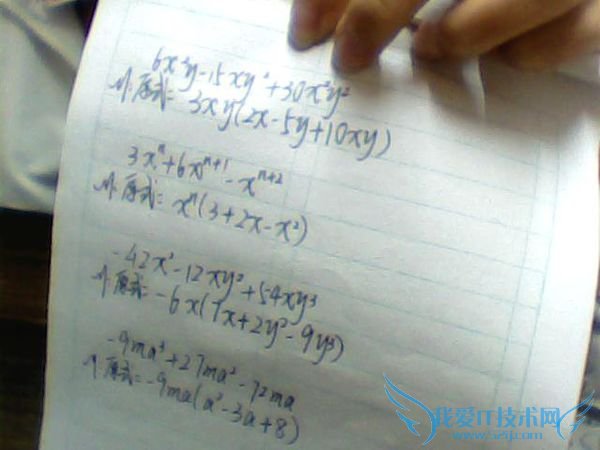 6x²y-15xy²+30x²y²
解:原式=3xy(2x-5y+10xy)
3xⁿ+6xⁿ⁺¹-xⁿ⁺²
解:原式=xⁿ(3+2x-x²)
-42x²-12xy²+54xy³
解:原式=-6x(7x+2y²-9y³)
-9ma³+27ma²-72ma
解:原式=-9ma(a²-3a+8)
我爱IT技术网
www.52ij.com